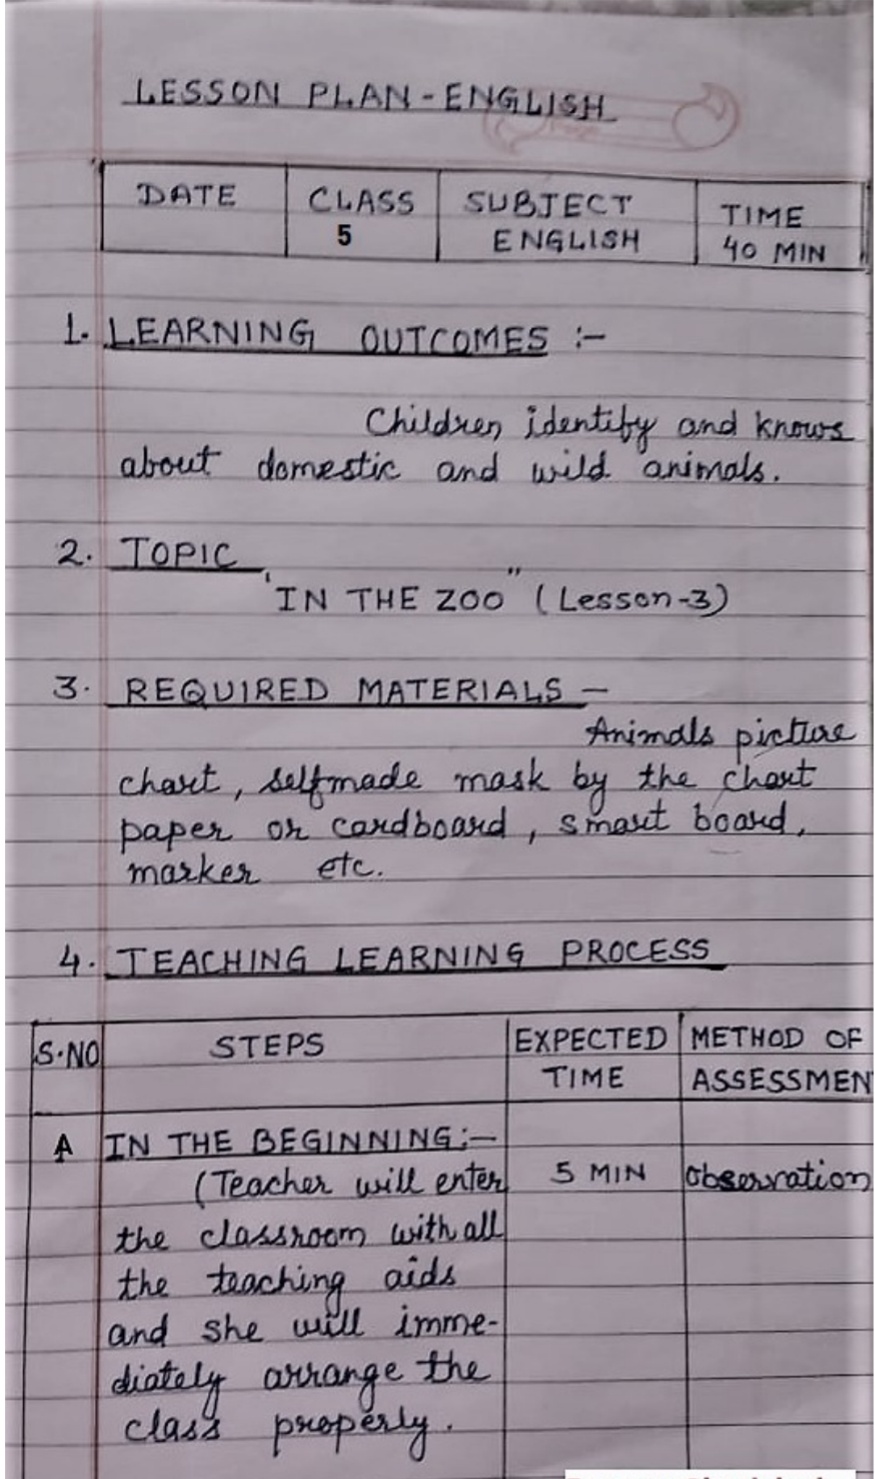 LESSON PLAN-ENGLISH
DATE CLASS SUBJECT TIME
5 ENGLISH 40 MIN
1. LEARNING OUTCOMES :-
Children identify and knows
about domestic and wild animals.
2. TOPIC
'IN THE ZOO" (Lesson-3)
3. REQUIRED MATERIALS -
Animals picture
chart, selfmade mask by the chart
paper or cardboard, smart board,
marker etc.
4. TEACHING LEARNING PROCESS
S.NO STEPS EXPECTED METHOD OF
TIME ASSESSMEN
A IN THE BEGINNING:-
(Teacher will enter 5 MIN Observation
the classroom with all
the teaching aids
and she will imme-
diately arrange the
class properly.